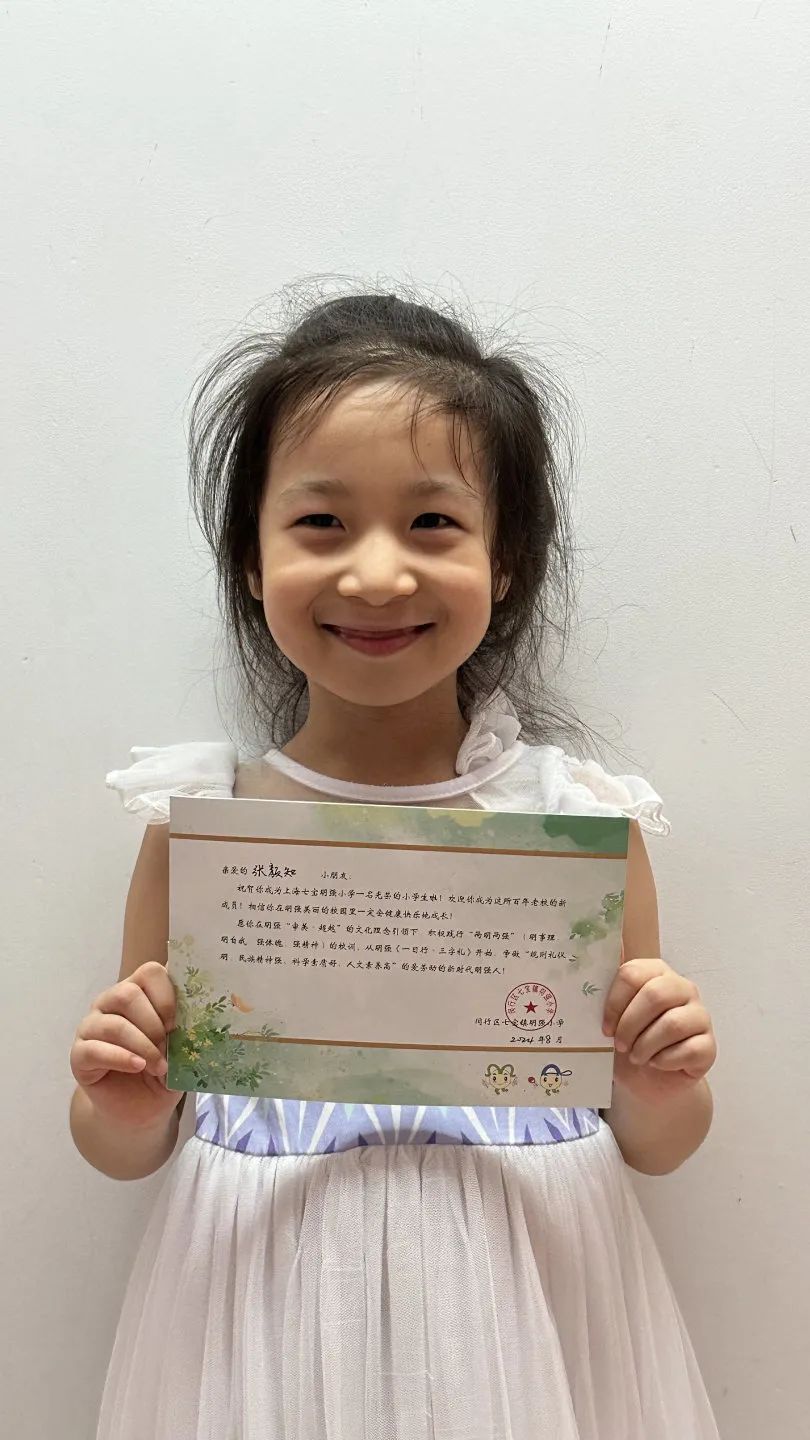 亲爱的 张毅知 小朋友：
祝贺你成为上海七宝明强小学一名光荣的小学生啦！欢迎你成为这所百年老校的新
成员！相信你在明强美丽的校园里一定会健康快乐地成长！
愿你在明强“审美·超越”的文化理念引领下，积极践行“两明两强”（明事理、
明自我、强体魄、强精神）的校训，从明强《一日行·三字礼》开始，争做“规则礼仪
明、民族精神强、科学素质好、人文素养高”的爱劳动的新时代明强人！
闵行区七宝镇明强小学
闵行区七宝镇明强小学
2024 年 8 月